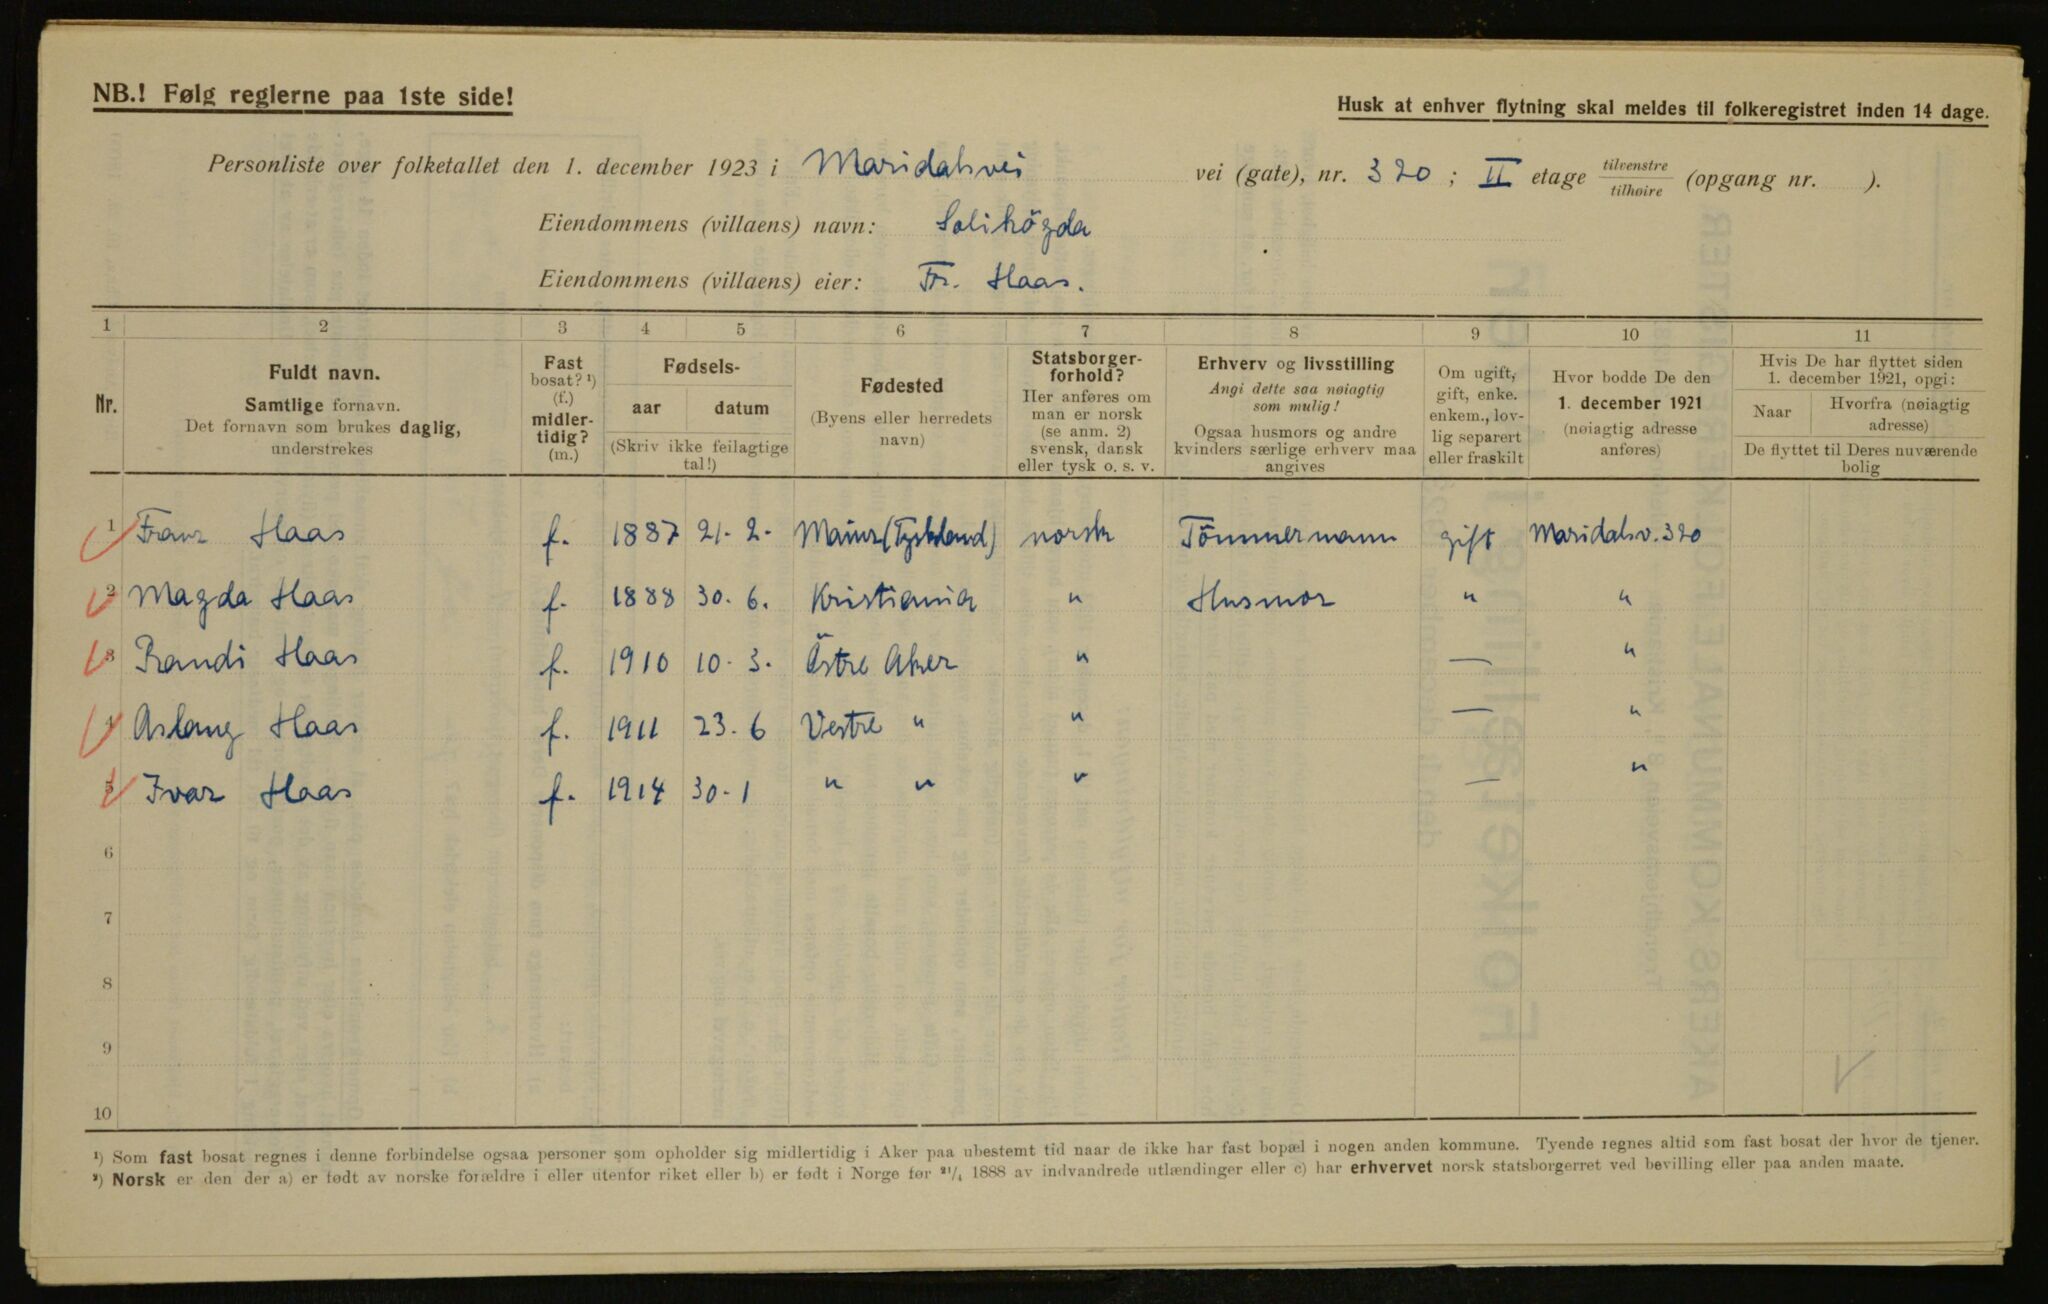 NB.! Følg reglerne paa 1ste side!
Husk at enhver flytning skal meldes til folkeregistret inden 14 dage.
Personliste over folketallet den 1. december 1923 i Maridalsvei vei (gate), nr. 320 ; II etage tilvenstre tilhøire (opgang nr. ).
Eiendommens (villaens) navn: Solihögda
Eiendommens (villaens) eier: Fr. Haas.
1 2 3 4 5 6 7 8 9 10 11
Nr.
Fuldt navn.
Samtlige fornavn.
Det fornavn som brukes daglig,
understrekes
Fast
bosat? ¹)
(f.)
midler-
tidig?
(m.)
Fødsels-
aar datum
(Skriv ikke feilagtige
tal!)
Fødested
(Byens eller herredets
navn)
Statsborger-
forhold?
Her anføres om
man er norsk
(se anm. 2)
svensk, dansk
eller tysk o. s. v.
Erhverv og livsstilling
Angi dette saa nøiagtig
som mulig!
Ogsaa husmors og andre
kvinders særlige erhverv maa
angives
Om ugift,
gift, enke.
enkem., lov-
lig separert
eller fraskilt
Hvor bodde De den
1. december 1921
(nøiagtig adresse
anføres)
Hvis De har flyttet siden
1. december 1921, opgi:
Naar Hvorfra (nøiagtig
adresse)
De flyttet til Deres nuværende
bolig
1 Franz Haas f. 1887 21. 2. Mainz (Tyskland) norsk Tömmermann gift Maridalsv. 320
2 Magda Haas f. 1888 30. 6. Kristiania " Husmor " "
3 Randi Haas f. 1910 10. 3. Östre Aker " — "
4 Aslaug Haas f. 1911 23. 6 Vestre " " — "
5 Ivar Haas f. 1914 30. 1 " " " — "
6
7
8
9
10
¹) Som fast bosat regnes i denne forbindelse ogsaa personer som opholder sig midlertidig i Aker paa ubestemt tid naar de ikke har fast bopæl i nogen anden kommune. Tyende regnes altid som fast bosat der hvor de tjener.
²) Norsk er den der a) er født av norske forældre i eller utenfor riket eller b) er født i Norge før ²¹/₄ 1888 av indvandrede utlændinger eller c) har erhvervet norsk statsborgerret ved bevilling eller paa anden maate.